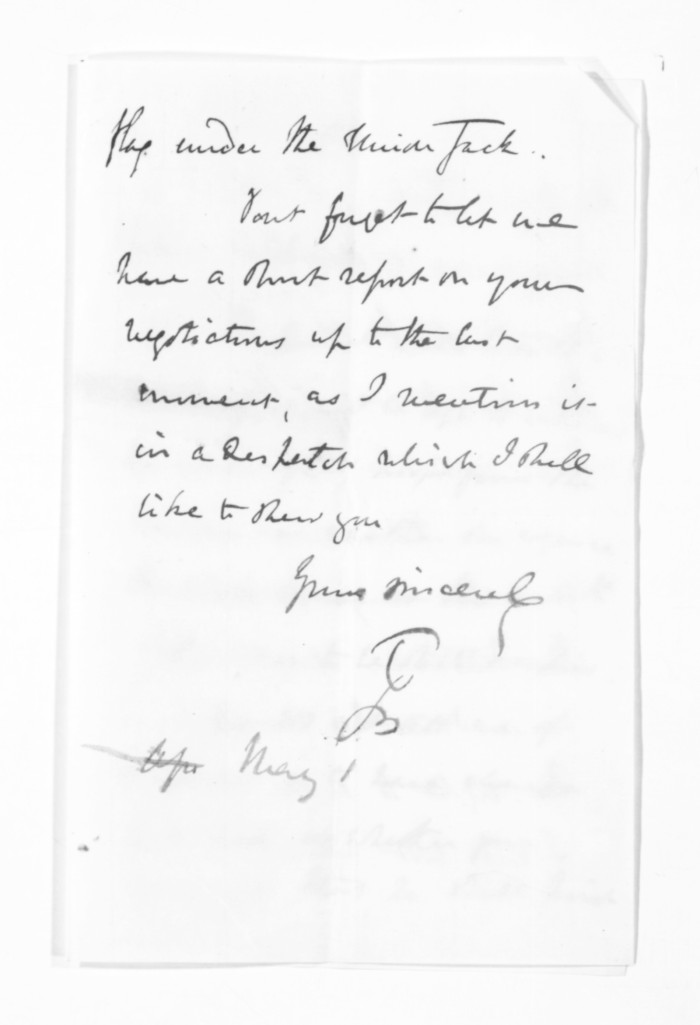 flag under the Union Jack.
Dont forget to let me
have a short report on your
negotiations up to the last
moment, as I mention it
in a Despatch which I shall
like to shew you
Yours sincerely
TGB
Apr May 1